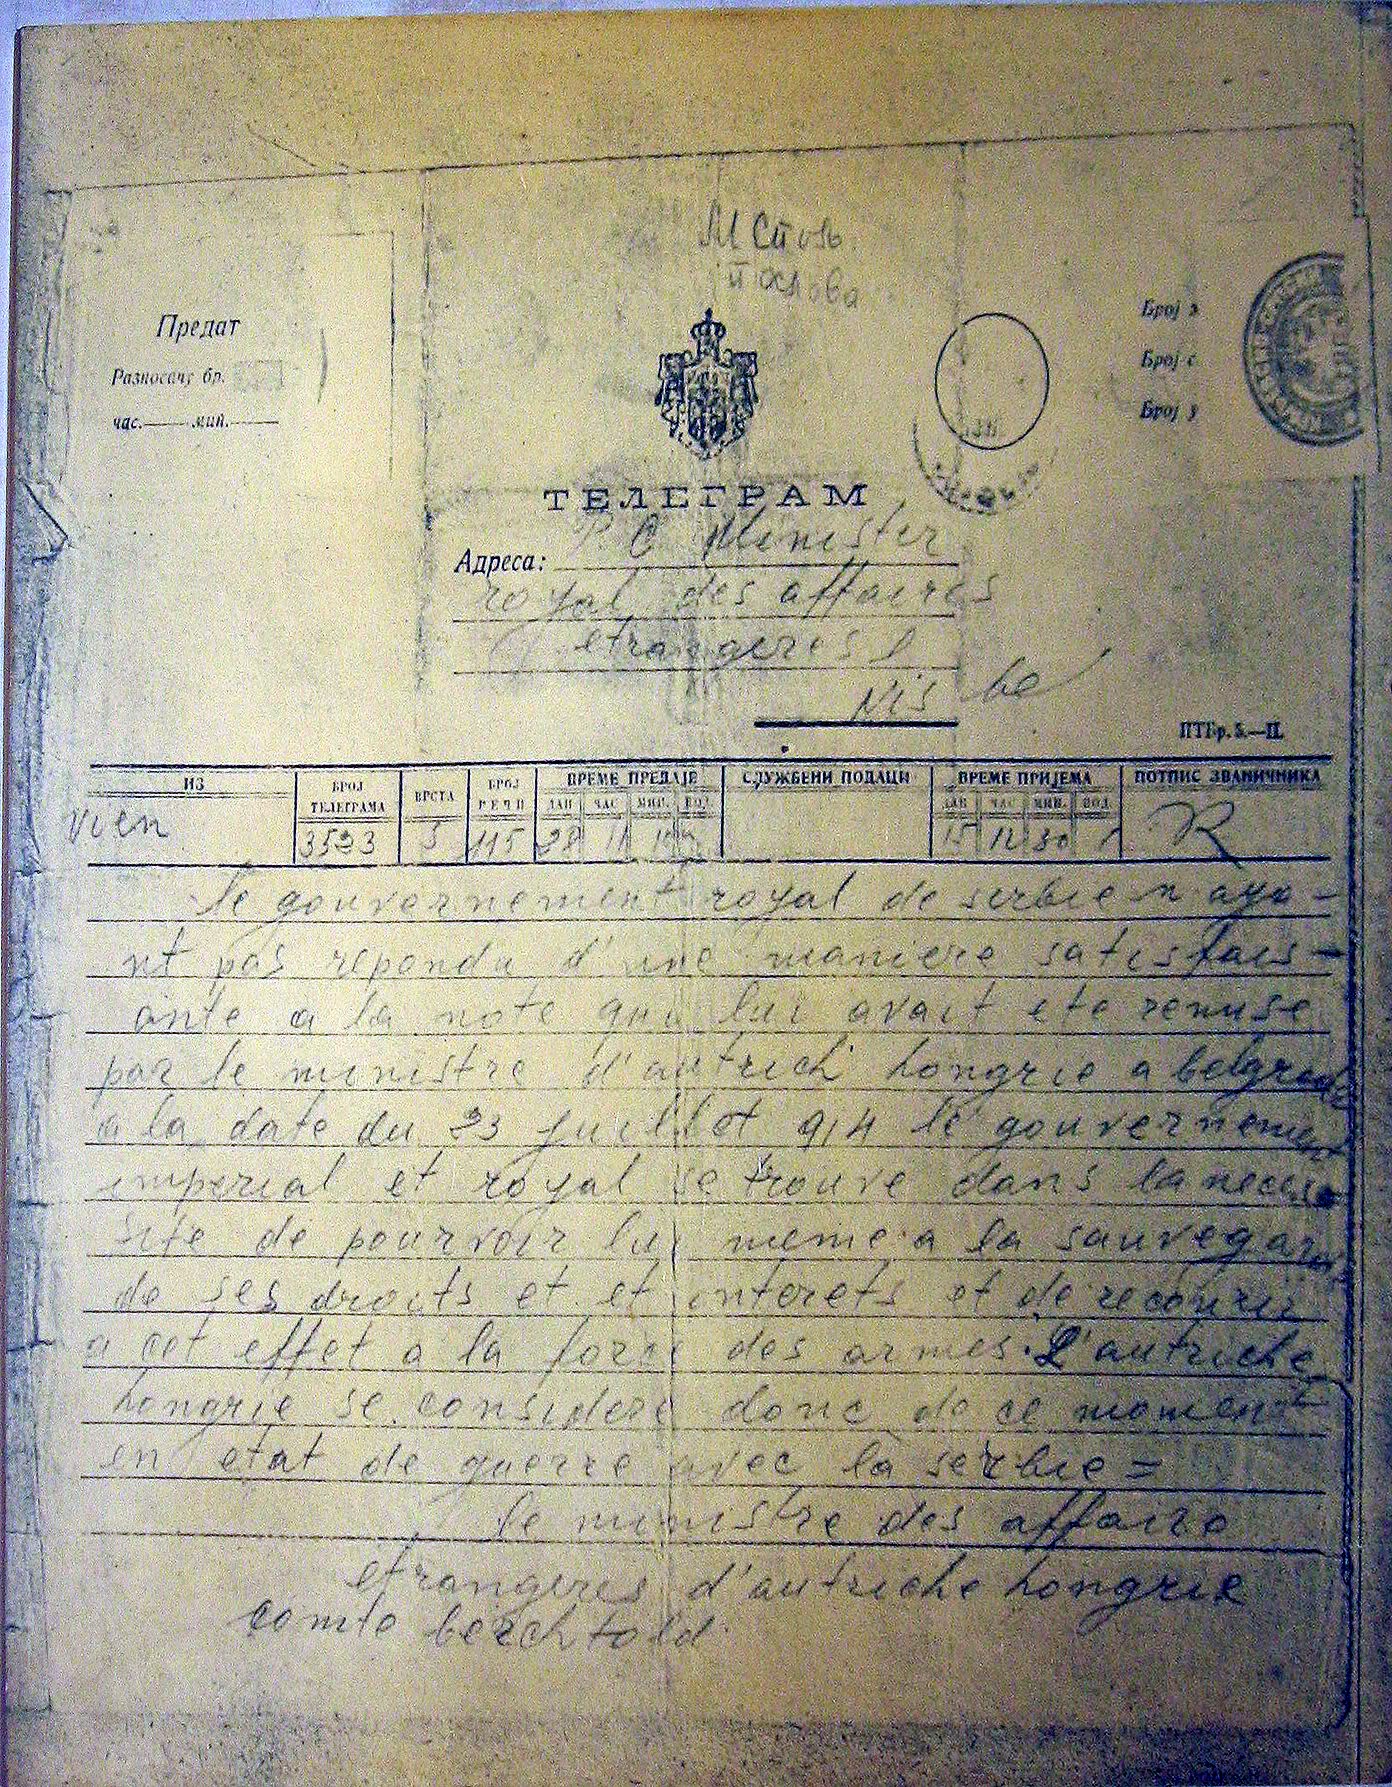 М Спољ.
Послова
Предат
Разносачу бр.
час. мин.
Број
Број
Број
ТЕЛЕГРАМ
Адреса: Minister
royal des affaires
etrangeres
Nis
ПТБр. 5.—II.
ИЗ
БРОЈ ТЕЛЕГРАМА
ВРСТА
БРОЈ РЕЧИ
ВРЕМЕ ПРЕДАЈЕ
СЛУЖБЕНИ ПОДАЦИ
ВРЕМЕ ПРИЈЕМА
ПОТПИС ЗВАНИЧНИКА
ДАН ЧАС МИН. ПОД. ДАН ЧАС МИН. ПОД.
vien 3523 5 115 28 11 10 15 12 30 R
le gouvernement royal de serbie n aya-
nt pas repondu d'une maniere satisfais-
ante a la note qui lui avait ete remise
par le ministre d'autrich hongrie a belgrade
a la date du 23 juillet 914 le gouvernement
imperial et royal se trouve dans la necess
site de pourvoir lui meme a la sauvegar
de ses droits et et interets et de recourir
a cet effet a la force des armes. L'autriche
hongrie se considere donc de ce moment
en etat de guerre avec la serbie =
le ministre des affaire
etrangeres d'autriche hongrie
comte berchtold